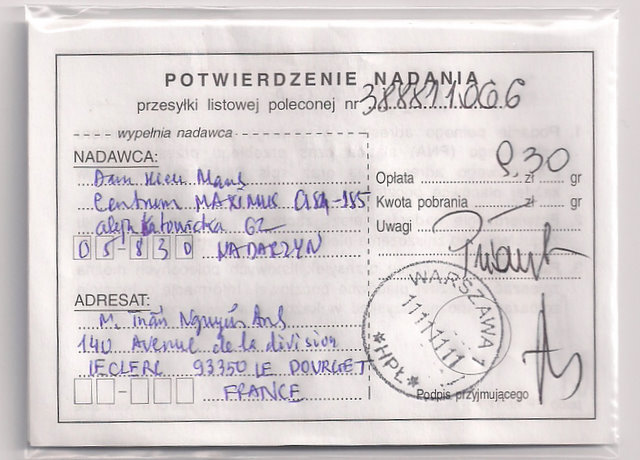 POTWIERDZENIE NADANIA
przesyłki listowej poleconej nr 388871.066
wypełnia nadawca
NADAWCA:
Centrum MAXIMUS
aleja Katowicka 62
05-830 NADARZYN
ADRESAT:
M. Trần Nguyên Anh
140 Avenue de la division
LECLERC 93350 LE BOURGET
FRANCE
Opłata 9,30 zł gr
Kwota pobrania zł gr
Uwagi
WARSZAWA 1
*HPŁ*
Podpis przyjmującego